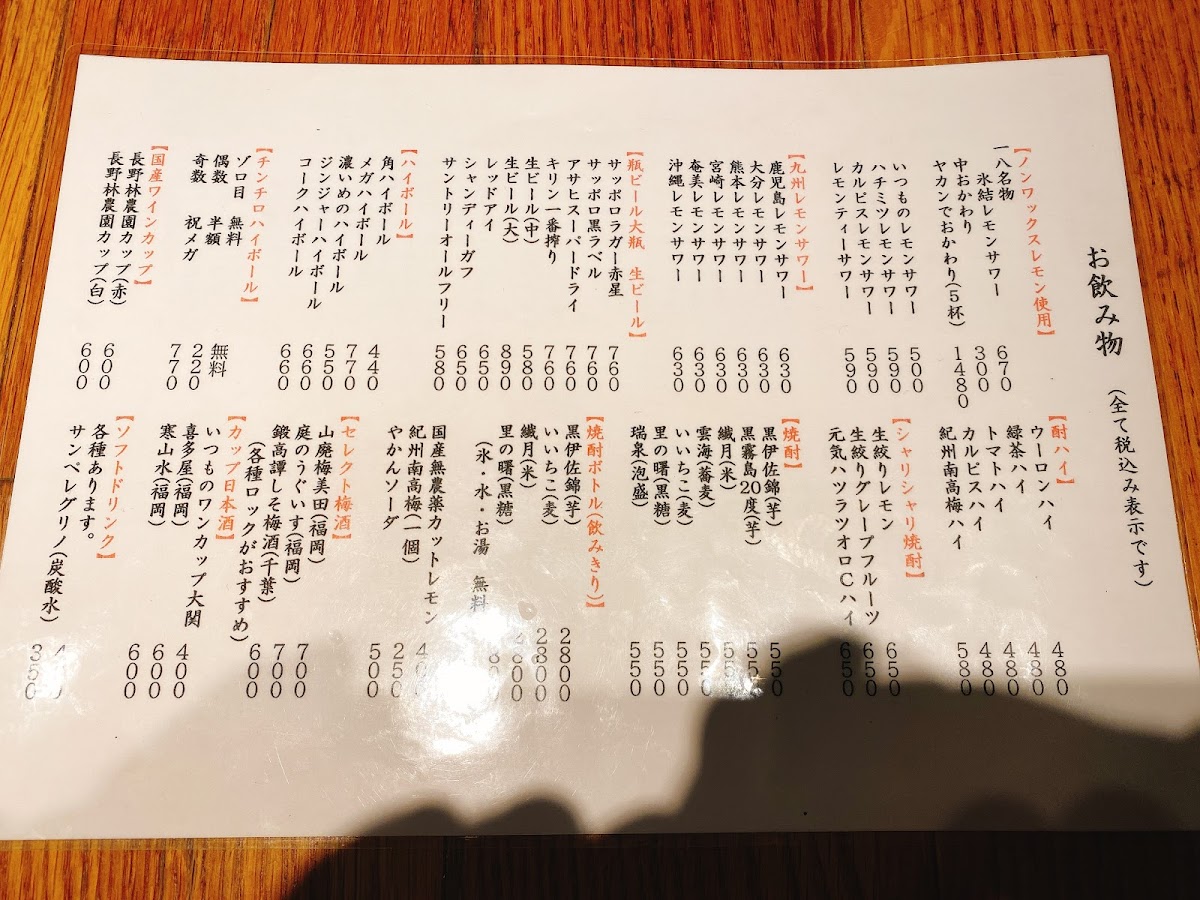 お飲み物 (全て税込み表示です)
【ノンワックスレモン使用】
一八名物
氷結レモンサワー 670
中おかわり 300
ヤカンでおかわり(5杯) 1480
いつものレモンサワー 500
ハチミツレモンサワー 590
カルピスレモンサワー 590
レモンティーサワー 590
【九州レモンサワー】
鹿児島レモンサワー 630
大分レモンサワー 630
熊本レモンサワー 630
宮崎レモンサワー 630
奄美レモンサワー 630
沖縄レモンサワー 630
【瓶ビール大瓶 生ビール】
サッポロラガー赤星 760
サッポロ黒ラベル 760
アサヒスーパードライ 760
キリン一番搾り 760
生ビール(中) 580
生ビール(大) 890
レッドアイ 650
シャンディーガフ 650
サントリーオールフリー 580
【ハイボール】
角ハイボール 440
メガハイボール 770
濃いめのハイボール 550
ジンジャーハイボール 660
コークハイボール 660
【チンチロハイボール】
ゾロ目 無料 無料
偶数 半額 220
奇数 祝メガ 770
【国産ワインカップ】
長野林農園カップ(赤) 600
長野林農園カップ(白) 600
【酎ハイ】
ウーロンハイ 480
緑茶ハイ 480
トマトハイ 480
カルピスハイ 480
紀州南高梅ハイ 580
【シャリシャリ焼酎】
生絞りレモン 650
生絞りグレープフルーツ 650
元気ハツラツオロCハイ 650
【焼酎】
黒伊佐錦(芋) 550
黒霧島20度(芋) 550
繊月(米) 550
雲海(蕎麦) 550
いいちこ(麦) 550
里の曙(黒糖) 550
瑞泉(泡盛) 550
【焼酎ボトル(飲みきり)】
黒伊佐錦(芋) 2800
いいちこ(麦) 2800
繊月(米)
里の曙(黒糖)
(氷・水・お湯 無料)
国産無農薬カットレモン
紀州南高梅(一個) 250
やかんソーダ 500
【セレクト梅酒】
山廃梅美田(福岡) 700
庭のうぐいす(福岡) 700
鍛高譚しそ梅酒(千葉) 600
(各種ロックがおすすめ)
【カップ日本酒】
いつものワンカップ大関 400
喜多屋(福岡) 600
寒山水(福岡) 600
【ソフトドリンク】
各種あります。
サンペレグリノ(炭酸水) 350